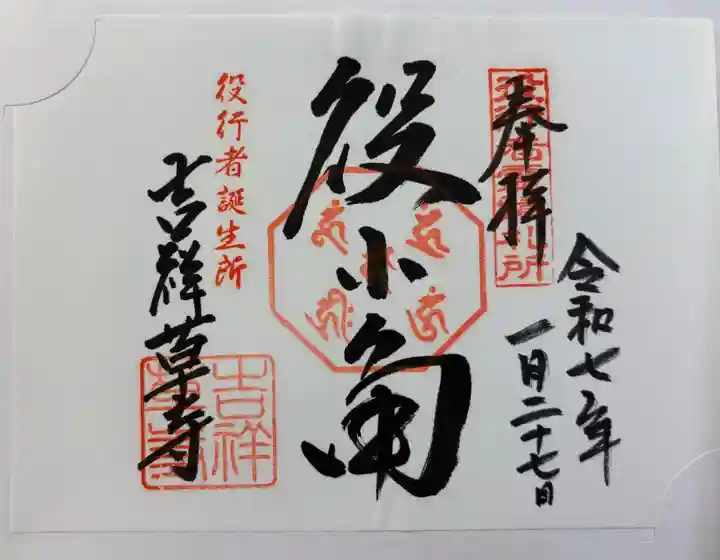 奉拝
令和七年
一月二十七日
役小角
役行者誕生所
吉祥草寺
吉祥
草寺